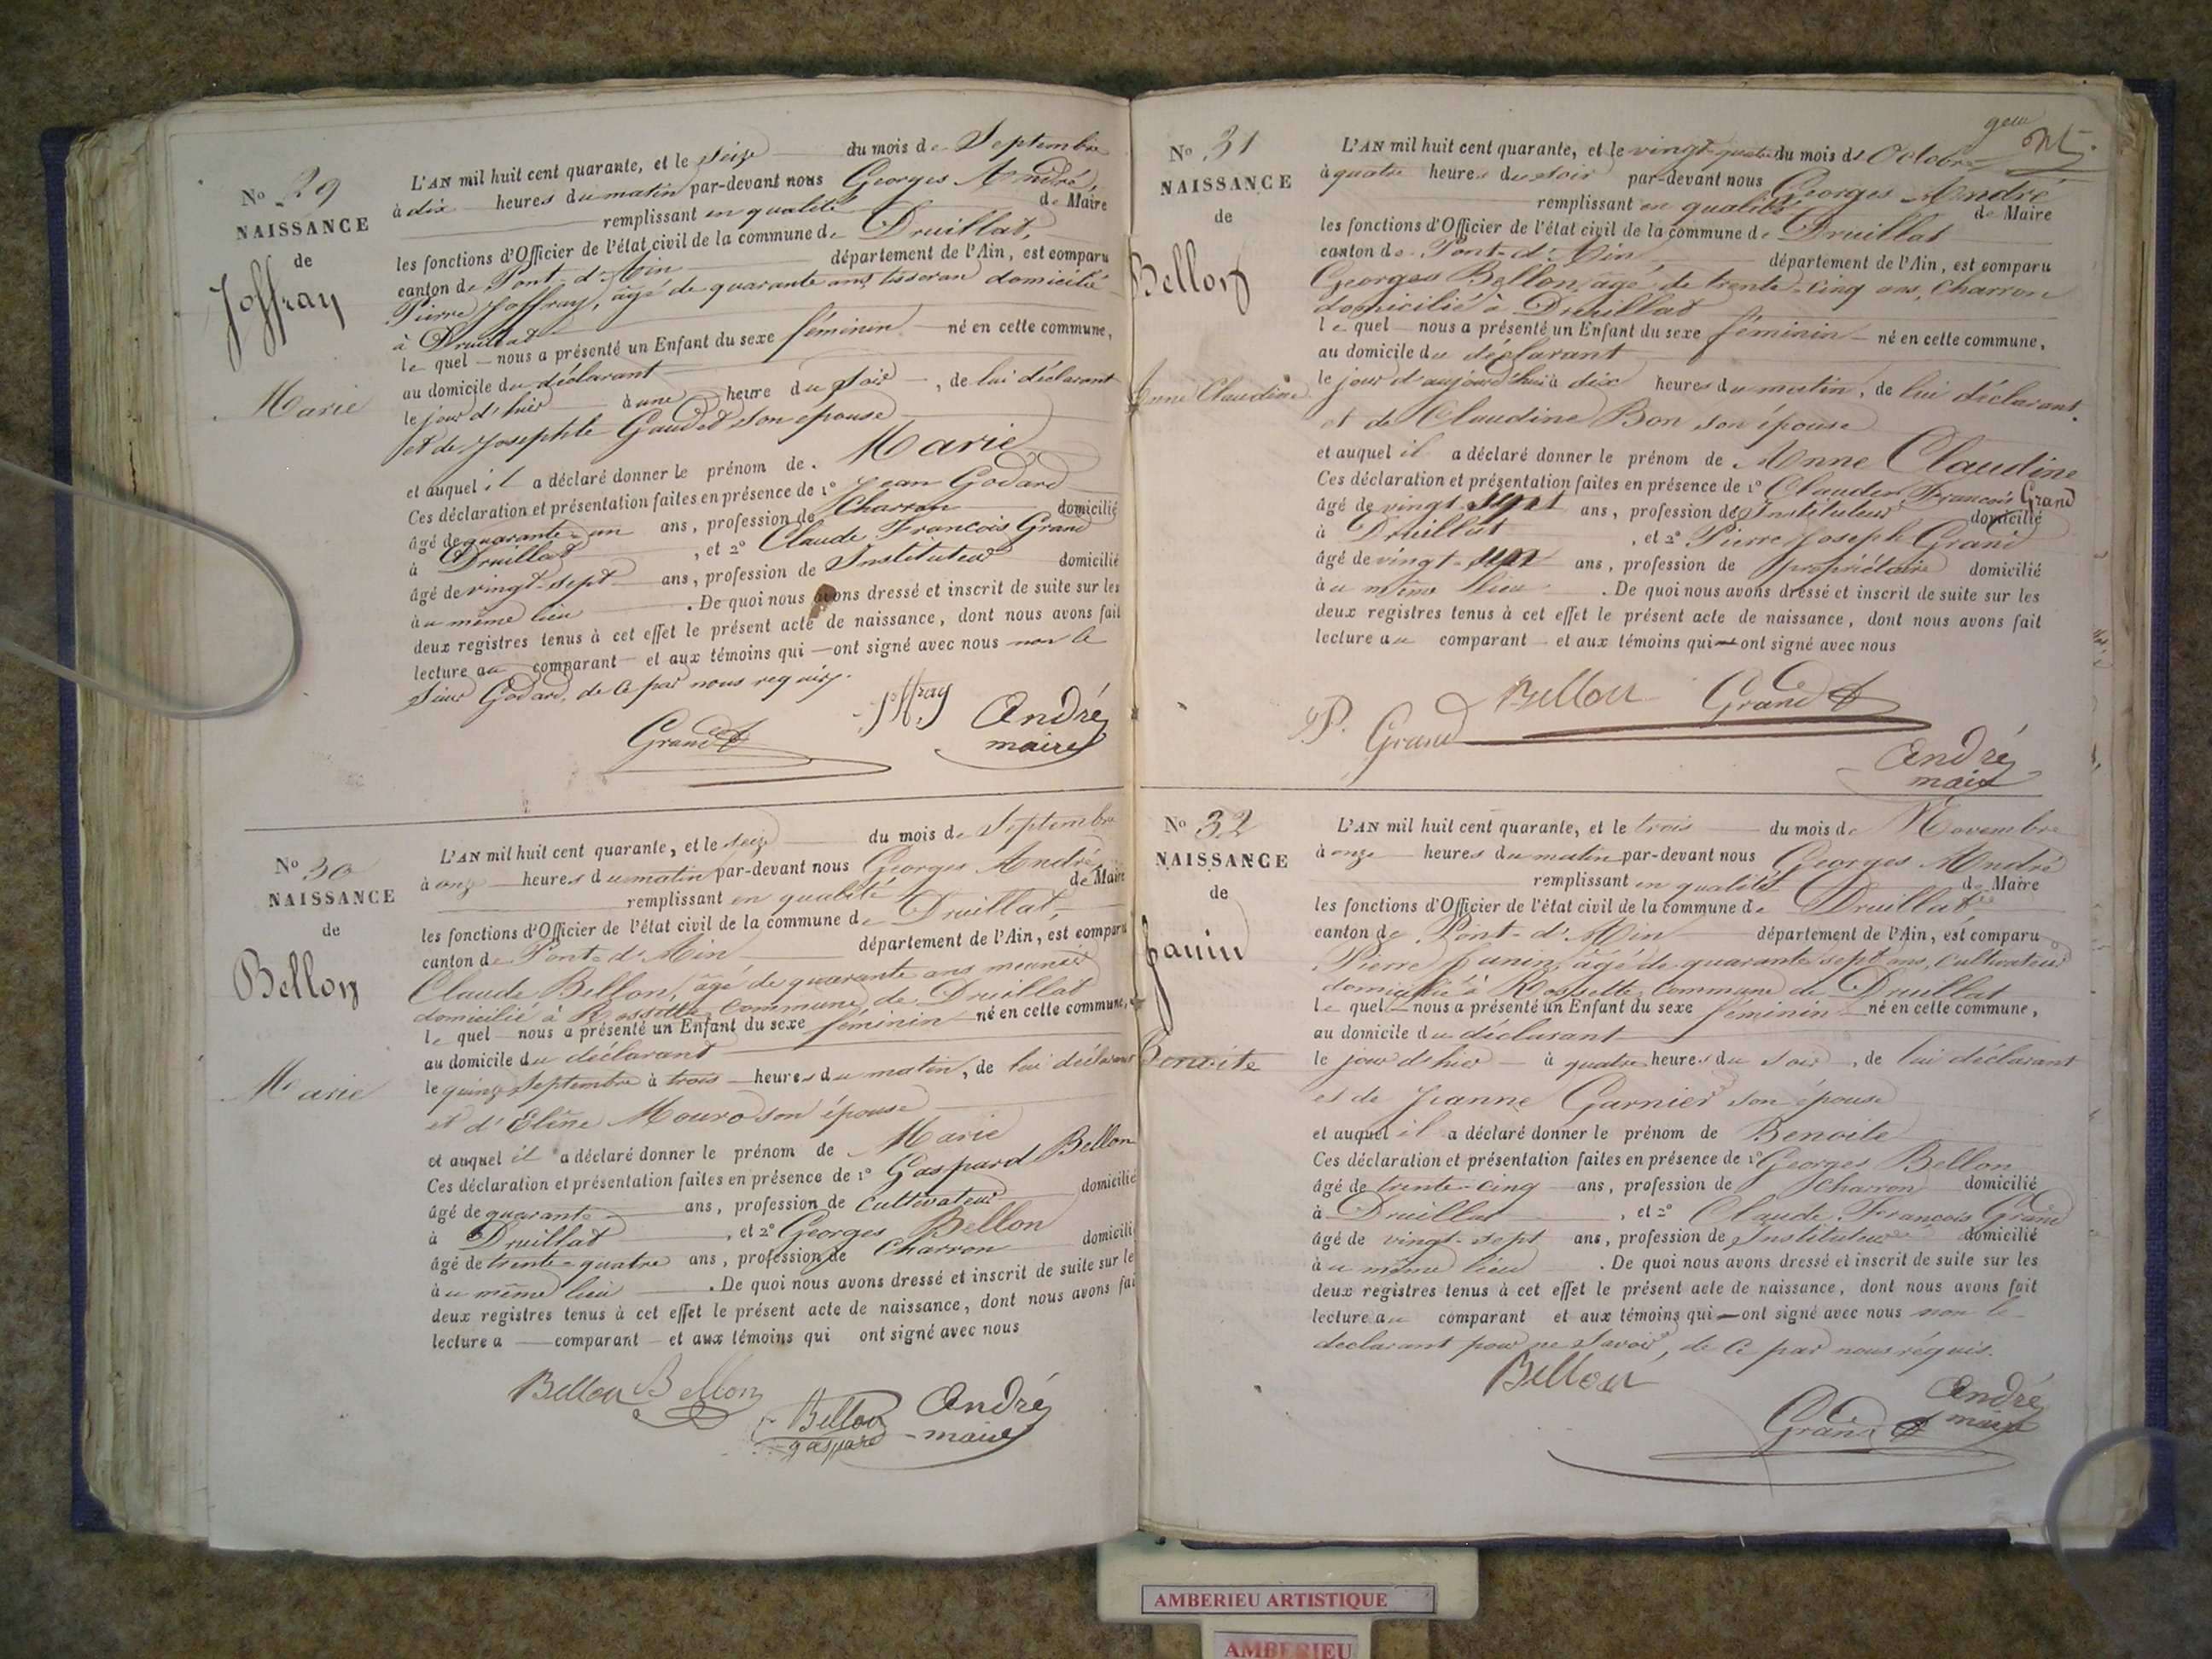 No 29
NAISSANCE
de
Joffray
Marie
L'AN mil huit cent quarante, et le seize du mois de Septembre
à dix heures du matin par-devant nous Georges André,
remplissant en qualité de Maire
les fonctions d'Officier de l'état civil de la commune de Druillat,
canton de Pont-d'Ain département de l'Ain, est comparu
Pierre Joffray, âgé de quarante ans, tisseran domicilié
à Druillat
le quel nous a présenté un Enfant du sexe féminin né en cette commune,
au domicile du déclarant
le jour d'hier à une heure du soir, de lui déclarant
et de Josephte Gaudet son épouse
et auquel il a déclaré donner le prénom de Marie
Ces déclaration et présentation faites en présence de 1° Jean Godard
âgé de quarante-un ans, profession de Charron domicilié
à Druillat, et 2° Claude François Grand
âgé de vingt-sept ans, profession de Instituteur domicilié
au même lieu. De quoi nous avons dressé et inscrit de suite sur les
deux registres tenus à cet effet le présent acte de naissance, dont nous avons fait
lecture au comparant et aux témoins qui ont signé avec nous non le
sieur Godard, de ce par nous requis.
Joffray André
Grand maire
No 30
NAISSANCE
de
Bellon
Marie
L'AN mil huit cent quarante, et le seize du mois de Septembre
à onze heures du matin par-devant nous Georges André,
remplissant en qualité de Maire
les fonctions d'Officier de l'état civil de la commune de Druillat,
canton de Pont-d'Ain département de l'Ain, est comparu
Claude Bellon, âgé de quarante ans meunier
domicilié à Rossette, Commune de Druillat
le quel nous a présenté un Enfant du sexe féminin né en cette commune,
au domicile du déclarant
le quinze Septembre à trois heures du matin, de lui déclarant
et d'Elène Mouro son épouse
et auquel il a déclaré donner le prénom de Marie
Ces déclaration et présentation faites en présence de 1° Gaspard Bellon
âgé de quarante ans, profession de Cultivateur domicilié
à Druillat, et 2° Georges Bellon
âgé de trente-quatre ans, profession de Charron domicilié
au même lieu. De quoi nous avons dressé et inscrit de suite sur le
deux registres tenus à cet effet le présent acte de naissance, dont nous avons fai
lecture a comparant et aux témoins qui ont signé avec nous
Bellon Bellon
Bellon André
gaspard maire
No 31
NAISSANCE
de
Bellon
Anne Claudine
L'AN mil huit cent quarante, et le vingt-quatre du mois d'Octobre
à quatre heures du soir par-devant nous Georges André
remplissant en qualité de Maire
les fonctions d'Officier de l'état civil de la commune de Druillat
canton de Pont-d'Ain département de l'Ain, est comparu
Georges Bellon, âgé de trente-cinq ans, Charron
domicilié à Druillat
le quel nous a présenté un Enfant du sexe féminin né en cette commune,
au domicile du déclarant
le jour d'aujourd'hui à dix heures du matin, de lui déclarant
et de Claudine Bon son épouse
et auquel il a déclaré donner le prénom de Anne Claudine
Ces déclaration et présentation faites en présence de 1° Claude François Grand
âgé de vingt-sept ans, profession de Instituteur domicilié
à Druillat, et 2° Pierre Joseph Grand
âgé de vingt-un ans, profession de propriétaire domicilié
au même lieu. De quoi nous avons dressé et inscrit de suite sur les
deux registres tenus à cet effet le présent acte de naissance, dont nous avons fait
lecture au comparant et aux témoins qui ont signé avec nous
Bellon Grand
Grand
André
maire
No 32
NAISSANCE
de
Janin
Benoite
L'AN mil huit cent quarante, et le trois du mois de Novembre
à onze heures du matin par-devant nous Georges André
remplissant en qualité de Maire
les fonctions d'Officier de l'état civil de la commune de Druillat
canton de Pont-d'Ain département de l'Ain, est comparu
Pierre Junin, âgé de quarante sept ans, Cultivateur
domicilié à Rossette, Commune de Druillat
le quel nous a présenté un Enfant du sexe féminin né en cette commune,
au domicile du déclarant
le jour d'hier à quatre heures du soir, de lui déclarant
et de Jeanne Garnier son épouse
et auquel il a déclaré donner le prénom de Benoite
Ces déclaration et présentation faites en présence de 1° Georges Bellon
âgé de trente-cinq ans, profession de Charron domicilié
à Druillat, et 2° Claude François Grand
âgé de vingt-sept ans, profession de Instituteur domicilié
au même lieu. De quoi nous avons dressé et inscrit de suite sur les
deux registres tenus à cet effet le présent acte de naissance, dont nous avons fait
lecture au comparant et aux témoins qui ont signé avec nous non le
déclarant pour ne savoir, de ce par nous réquis.
Bellon
Grand André
maire
AMBERIEU ARTISTIQUE
AMBERIEU